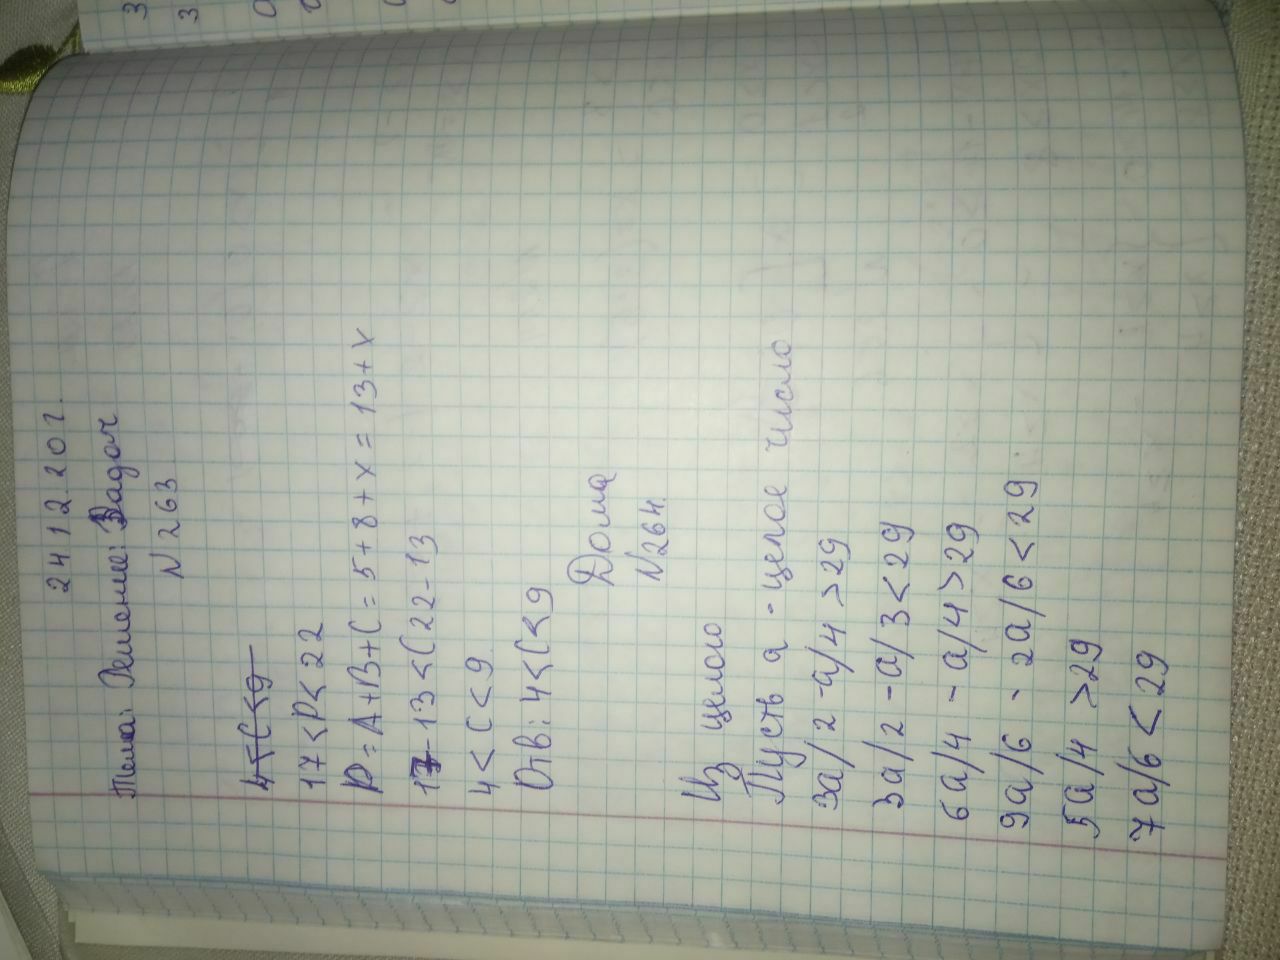 24 12 20 г.
Тема: Решение: Задач
N 263
4<C<9
17<P<22
P=A+B+C=5+8+x=13+x
17-13<C22-13
4<C<9
Отв: 4<C<9
Дома
N264.
Из целого
Пусть a - целое число
3a/2-a/4>29
3a/2-a/3<29
6a/4-a/4>29
9a/6-2a/6<29
5a/4>29
7a/6<29